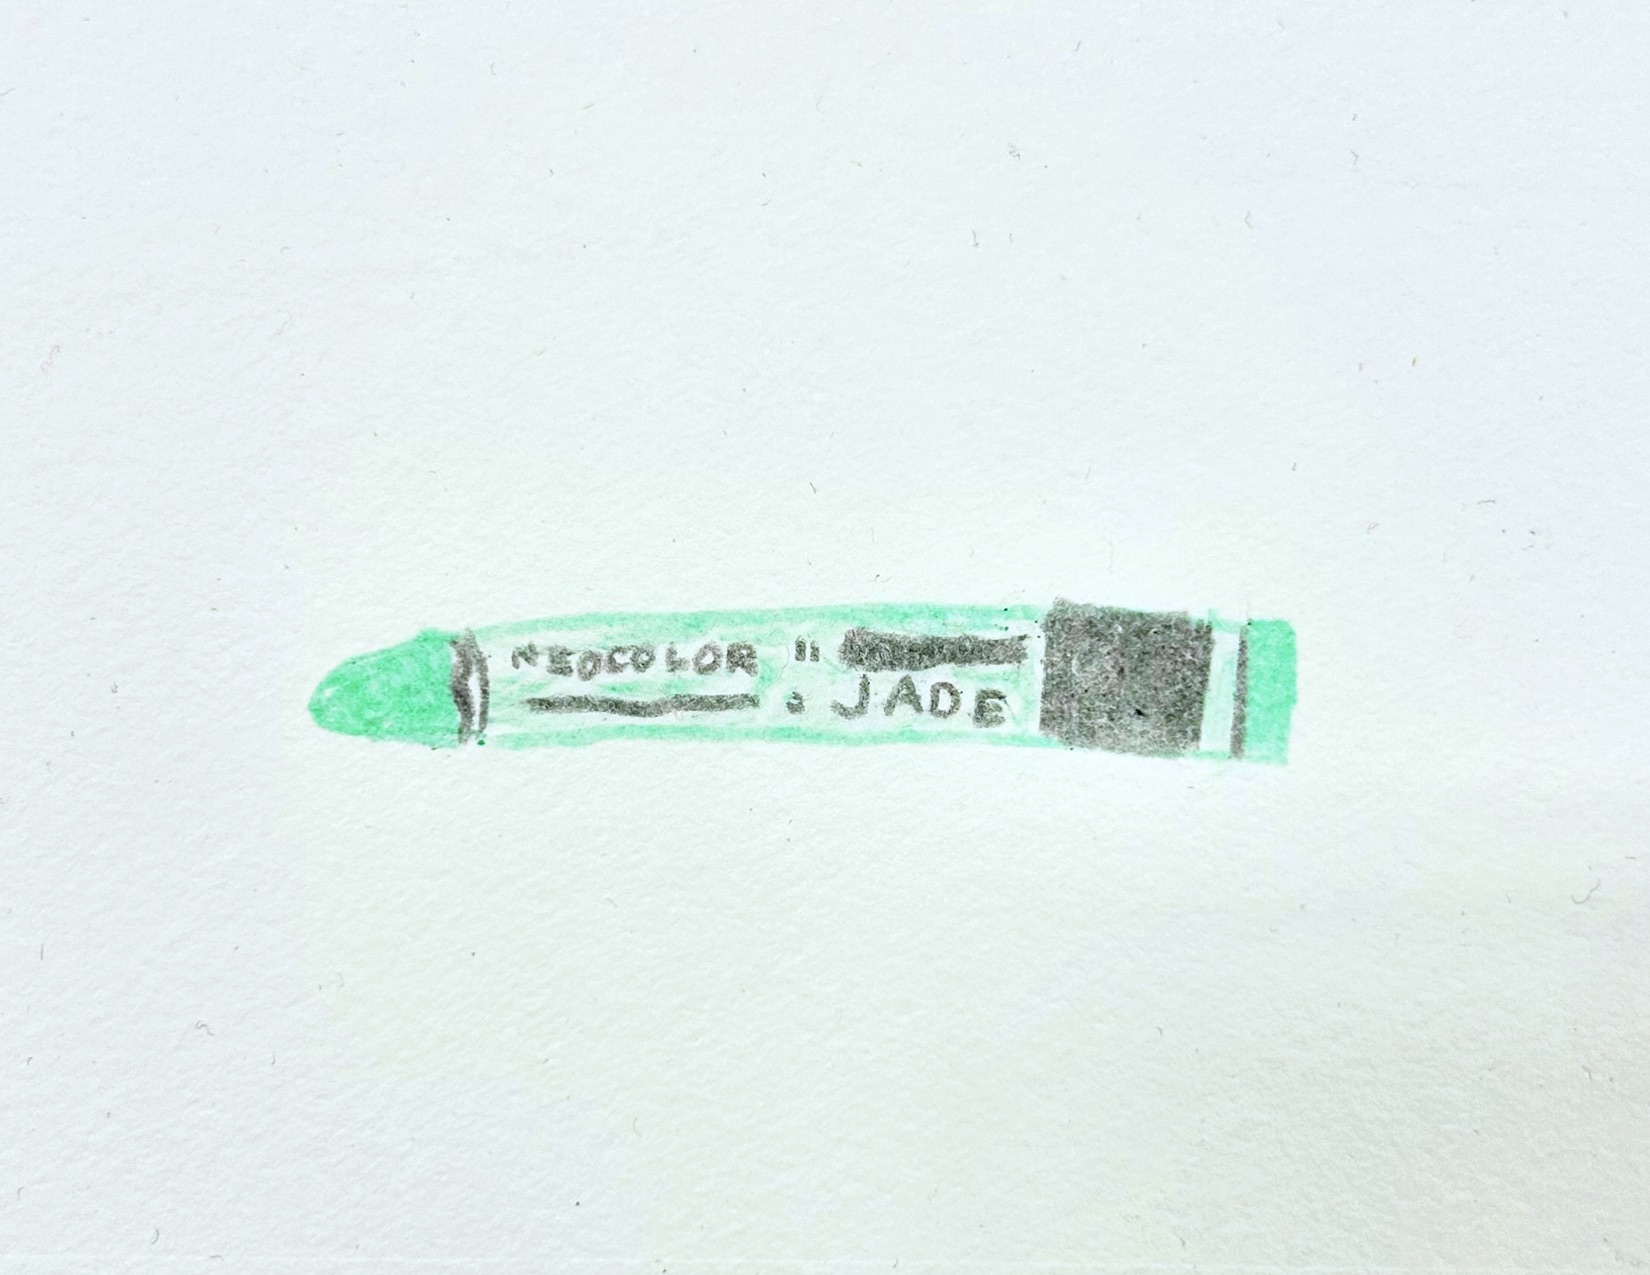 NEOCOLOR II
: JADE